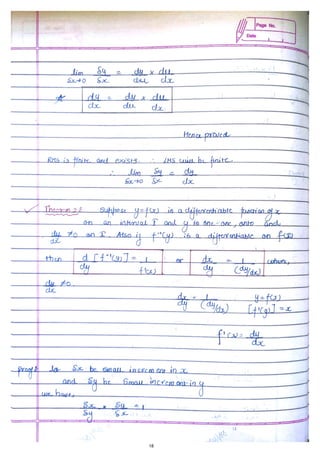 Page No.
Date
lim δy = dy × du
δx→0 δx du dx
* dy = dy × du
dx du dx
Hence proved
RHS is finite and exists ∴ LHS will be finite
∴ lim δy = dy
δx→0 δx dx
✓ Theorem 2: Suppose y=f(x) is a differentiable function of x
on an interval I and y is one-one, onto and
dy ≠0 on I. Also if f⁻¹(y) is a differentiable on f(I)
dx
then d [f⁻¹(y)] = 1 or dx = 1 where,
dy f'(x) dy (dy/dx)
dy ≠0
dx
dx = 1 y=f(x)
dy (dy/dx) [f⁻¹(y)] = x
f'(x) = dy
dx
proof: δx be small increment in x
and δy be small increment in y
we have,
δx × δy = 1
δy δx
18